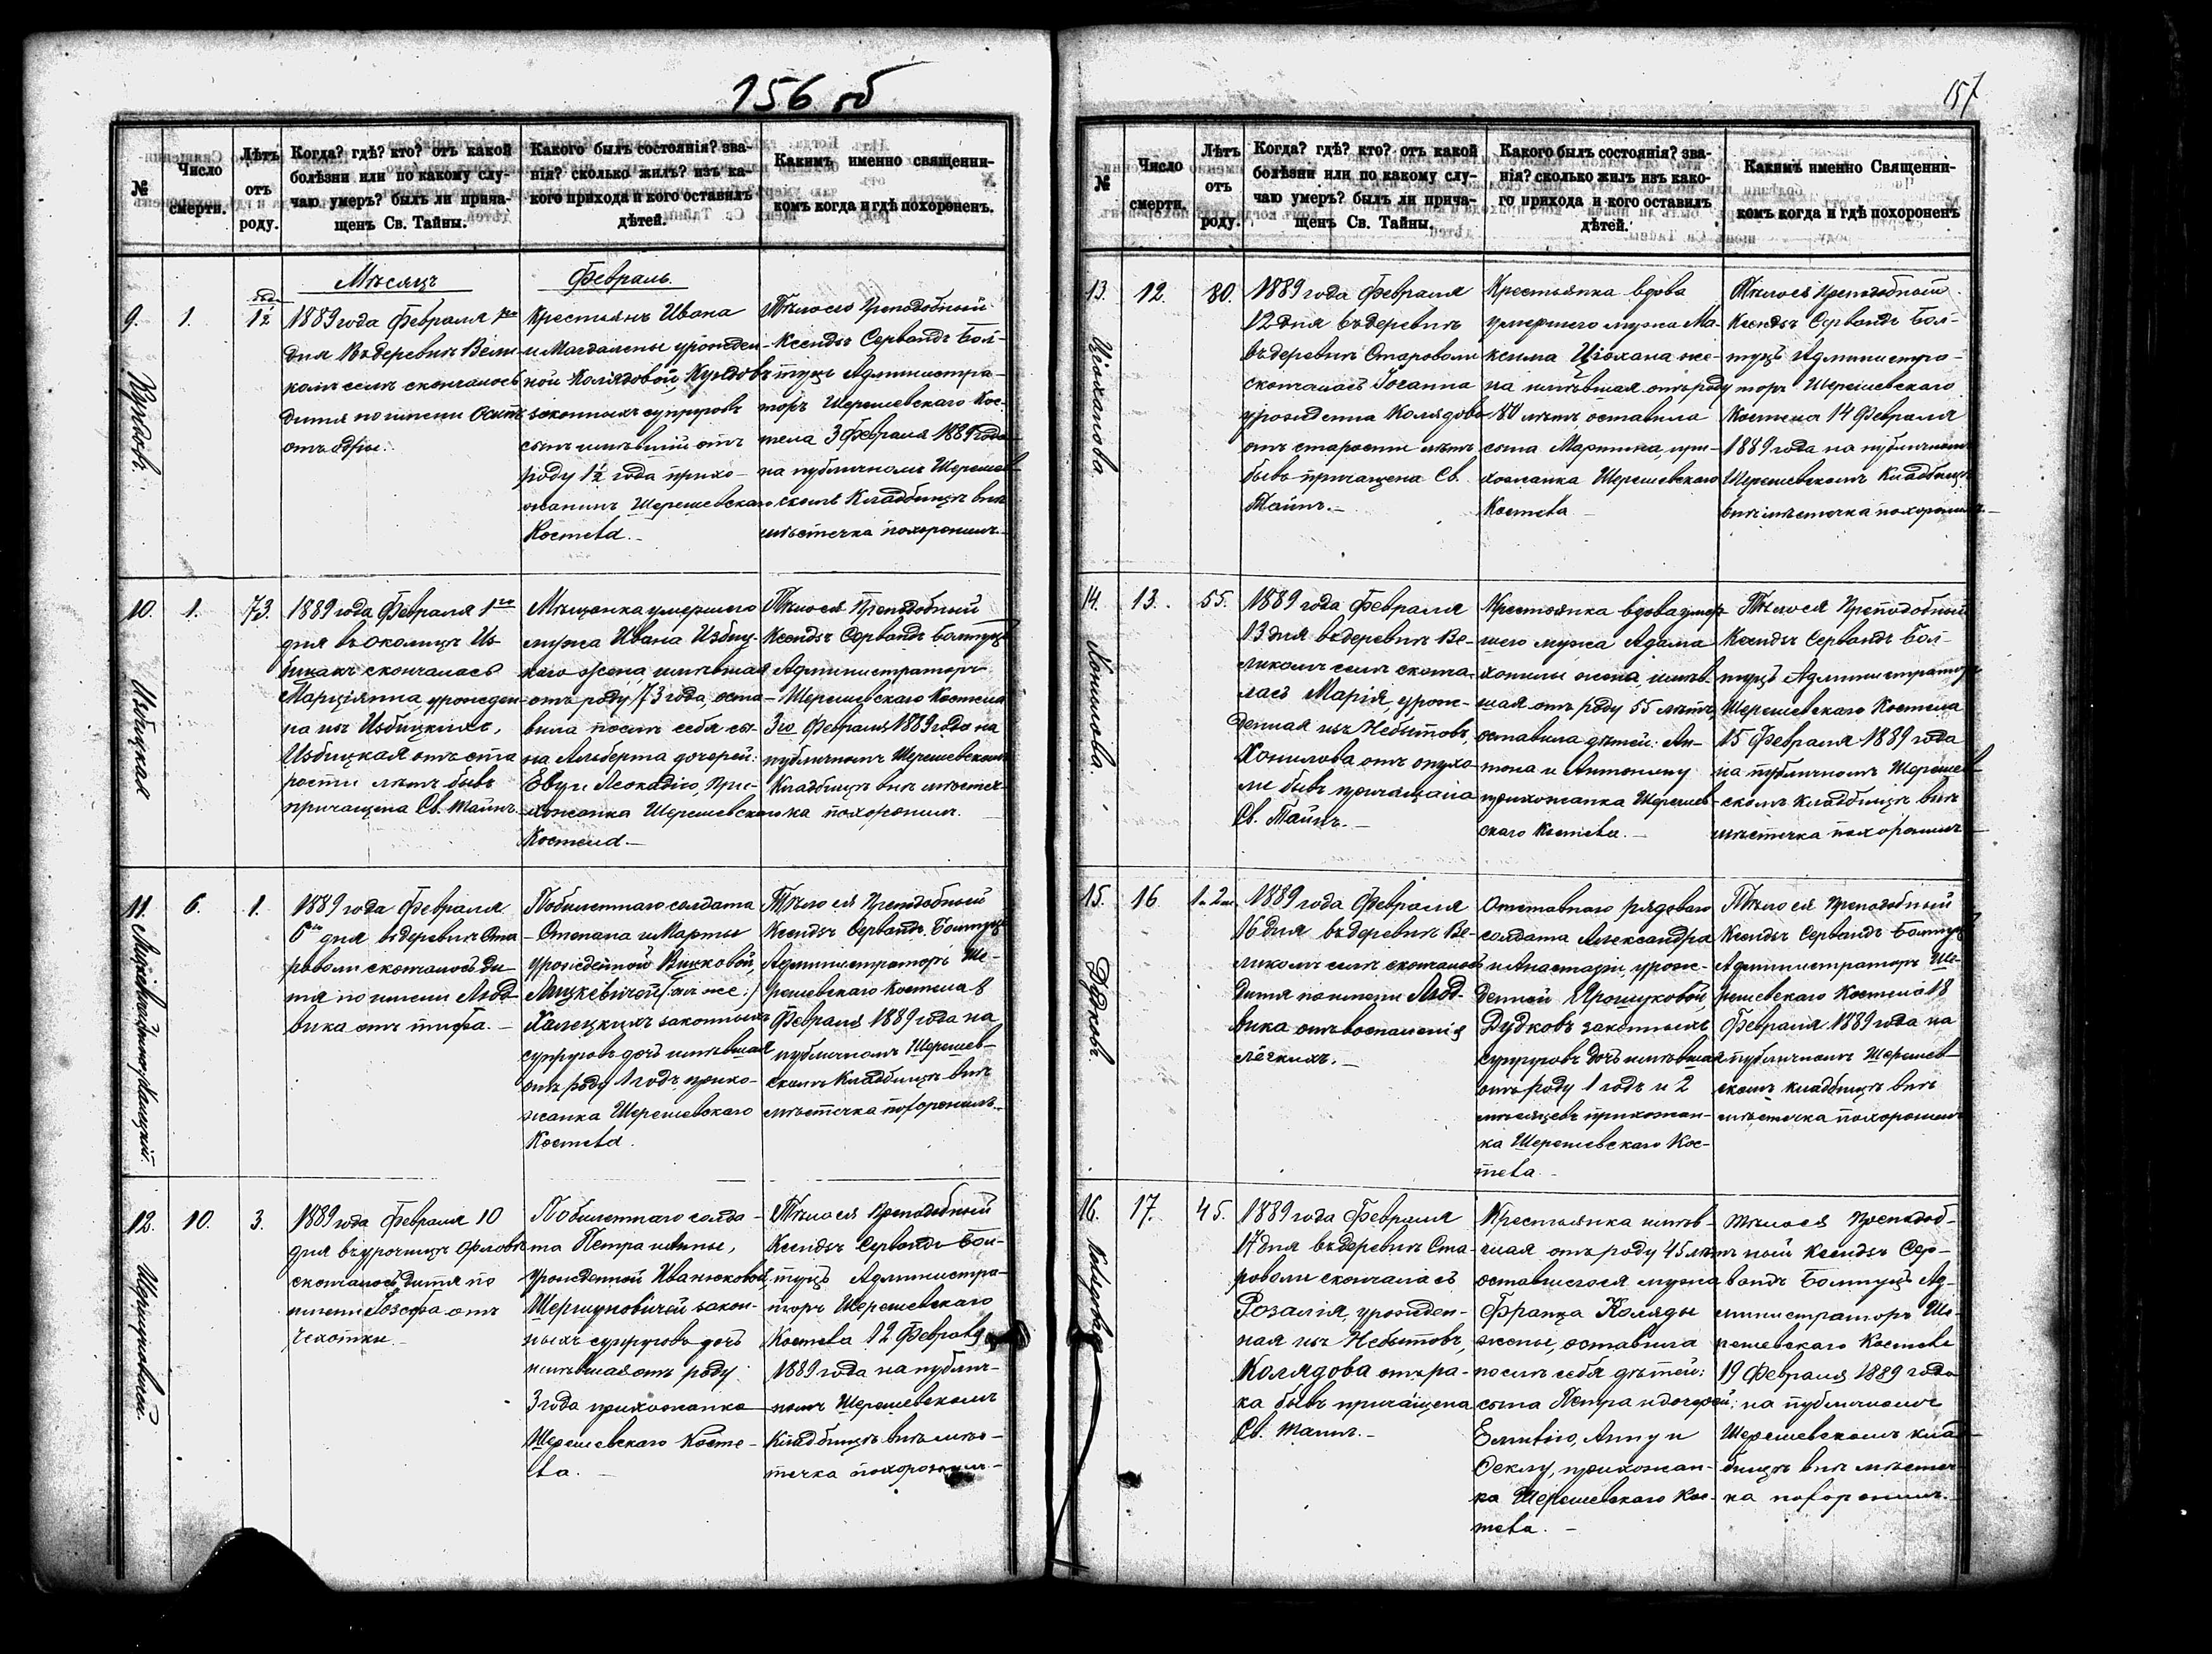 156 об
№
Число
смерти.
Лѣтъ
отъ
роду.
Когда? гдѣ? кто? отъ какой
болѣзни или по какому слу-
чаю умеръ? былъ ли прича-
щенъ Св. Тайны.
Какого былъ состоянія? зва-
нія? сколько жилъ? изъ ка-
кого прихода и кого оставилъ
дѣтей.
Какимъ именно священни-
комъ когда и гдѣ похороненъ.
Мѣсяцъ
Февраль.
9.
1.
1½
1889 года Февраля 1го
дня въ деревнѣ Вели-
комъ селѣ скончалось
дитя по имени
отъ одры.
Крестьянъ Ивана
и Магдалены урожден-
ной Колядовой,
законныхъ супруговъ
сынъ имѣвшій отъ
роду 1½ года прихо-
жанинъ Шерешевскаго
Костела.
Тѣло его Преподобный
Ксендзъ Сервандъ Бол-
туць Администра-
торъ Шерешевскаго Кос-
тела 3 Февраля 1889 года
на публичномъ Шерешев-
скомъ Кладбищѣ внѣ
мѣстечка похоронилъ.
10.
1.
73.
Избицкая
1889 года Февраля 1го
дня въ околицѣ Из-
бицкъ скончалась
Марціянна, урожден-
на изъ Избицкихъ,
Избицкая отъ ста
рости лѣтъ бывъ
причащена Св. Тайнъ.
Мѣщанка умершаго
мужа Ивана Избиц-
каго жена, имѣвшая
отъ роду 73 года, оста-
вила послѣ себя сы-
на Альберта дочерей:
Эву и Леокадію, при-
хожанка Шерешевскаго
Костела.
Тѣло ея Преподобный
Ксендзъ Сервандъ Болтуць
Администраторъ
Шерешевскаго Костела
3го Февраля 1889 года на
публичномъ Шерешевскомъ
Кладбищѣ внѣ мѣстеч-
ка похоронилъ.
11.
6.
1.
1889 года Февраля
6го дня въ деревнѣ Ста
роволи скончалось ди
тя по имени Люд-
вика отъ тифа.
Побилетнаго солдата
Степана и Марты
урожденной Вицковой,
Мицкевичей (онъ же)
Халецкихъ законныхъ
супруговъ дочь имѣвшая
отъ роду 1 годъ прихо-
жанка Шерешевскаго
Костела.
Тѣло ея Преподобный
Ксендзъ Сервандъ Болтуць
Администраторъ Ше-
решевскаго Костела 8
Февраля 1889 года на
публичномъ Шерешев-
скомъ Кладбищѣ внѣ
мѣстечка похоронилъ.
12.
10.
3.
1889 года Февраля 10
дня въ урочищѣ Орловѣ
скончалось дитя по
имени Іозефа отъ
чахотки
Побилетнаго солда-
та Петра и Анны,
урожденной Иванюковой,
Шершуновичей закон-
ныхъ супруговъ дочь
имѣвшая отъ роду
3 года прихожанка
Шерешевскаго Косте-
ла.
Тѣло ея Преподобный
Ксендзъ Сервандъ Бол-
туць Администра-
торъ Шерешевскаго
Костела 12 Февраля
1889 года на публич-
номъ Шерешевскомъ
Кладбищѣ внѣ мѣс-
течка похоронилъ
157
№
Число
смерти.
Лѣтъ
отъ
роду.
Когда? гдѣ? кто? отъ какой
болѣзни или по какому слу-
чаю умеръ? былъ ли прича-
щенъ Св. Тайны.
Какого былъ состоянія? зва-
нія? сколько жилъ изъ како-
го прихода и кого оставилъ
дѣтей.
Какимъ именно Священни-
комъ когда и гдѣ похороненъ
13.
12.
80.
Ціоханова
1889 года Февраля
12 дня въ деревнѣ
въ деревнѣ Староволи
скончалась Іоганна
урожденна Колядова
отъ старости лѣтъ
бывъ причащена Св.
Тайнъ.
Крестьянка вдова
умершаго мужа Ма-
ксима Ціохана же-
на имѣвшая отъ роду
80 лѣтъ, оставила
сына Мартина, при-
хожанка Шерешевскаго
Костела
Тѣло ея Преподобный
Ксендзъ Сервандъ Бол-
туць Администра-
торъ Шерешевскаго
Костела 14 Февраля
1889 года на публичномъ
Шерешевскомъ Кладбищѣ
внѣ мѣстечка похоронилъ.
14.
13.
55.
Хонилова.
1889 года Февраля
13 дня въ деревнѣ Ве-
ликомъ селѣ сконча-
лась Марія, урож-
денная изъ Небытовъ,
Хонилова отъ опухо
ли бывъ причащана
Св. Тайнъ.
Крестьянка вдова умер-
шаго мужа Адама
Хонилы жена, имѣв-
шая отъ роду 55 лѣтъ,
оставила дѣтей: Ан-
тона и Антонину
прихожанка Шерешев-
скаго Костела.
Тѣло ея Преподобный
Ксендзъ Сервандъ Бол-
туць Администраторъ
Шерешевскаго Костела
15 Февраля 1889 года
на публичномъ Шерешев-
скомъ кладбищѣ внѣ
мѣстечка похоронилъ
15.
16.
Дудковъ
1889 года Февраля
16 дня въ деревнѣ Ве-
ликомъ селѣ скончалось
дитя по имени Люд-
вика отъ воспаленія
лёгкихъ.
Отставнаго рядоваго
солдата Александра
и Анастазіи урож-
денной Ярошуковой,
Дудковъ законныхъ
супруговъ дочь имѣвшая
отъ роду 1 годъ и 2
мѣсяцевъ прихожан-
ка Шерешевскаго Кос-
тела.
Тѣло ея Преподобный
Ксендзъ Сервандъ Болтуць
Администраторъ Ше-
решевскаго Костела 18
Февраля 1889 года на
публичномъ Шерешев-
скомъ кладбищѣ внѣ
мѣстечка похоронилъ
16.
17.
45.
1889 года Февраля
17 дня въ деревнѣ Ста-
роволи скончалась
Розалія, урожден-
ная изъ Небытовъ,
Колядова отъ ра-
ка бывъ причащена
Св. Тайнъ.
Крестьянка имѣв-
шая отъ роду 45 лѣтъ
оставшегося мужа
Франца Коляды
жены, оставила
послѣ себя дѣтей:
сына Петра и дочерей:
Емилію, Анну и
Феклу, прихожан-
ка Шерешевскаго Кос-
тела.
Тѣло ея Преподоб-
ный Ксендзъ Сер-
вандъ Болтуць Ад-
министраторъ Ше-
решевскаго Костела
19 Февраля 1889 года
на публичномъ
Шерешевскомъ клад-
бищѣ внѣ мѣстеч-
ка похоронилъ.